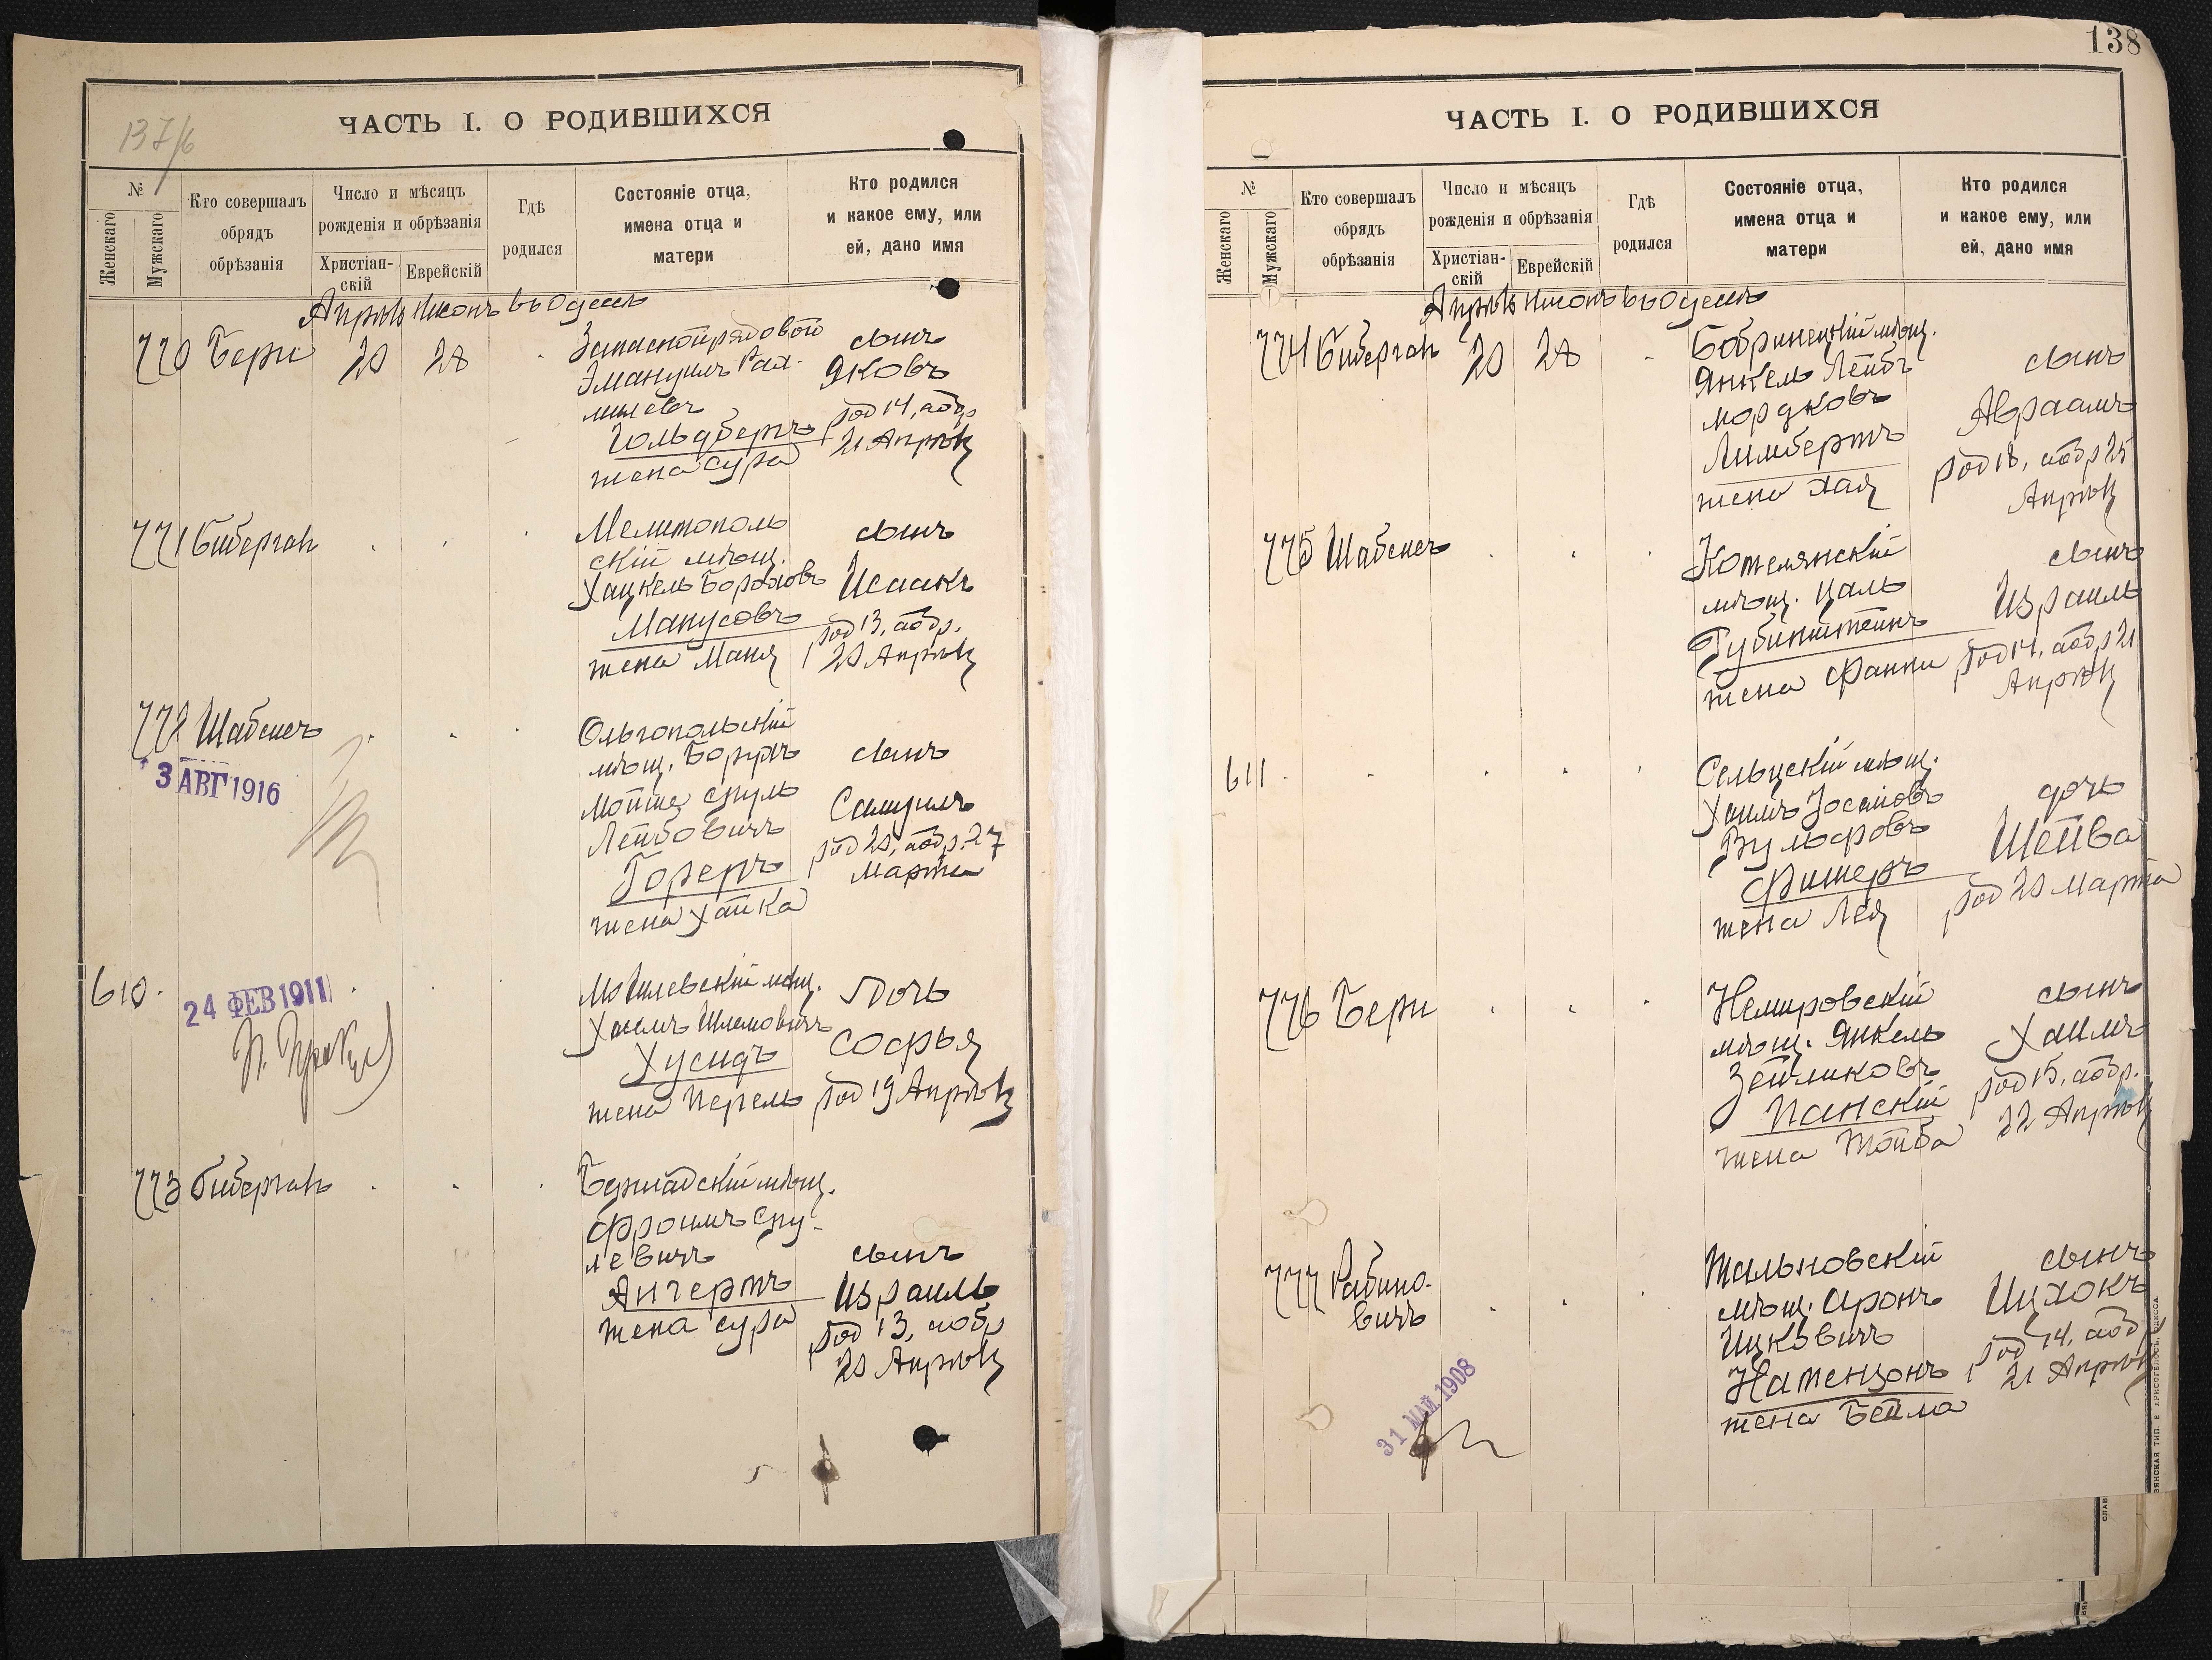 137/б
ЧАСТЬ I. О РОДИВШИХСЯ
№
Женскаго
Мужскаго
Кто совершалъ
обрядъ
обрѣзанія
Число и мѣсяцъ
рожденія и обрѣзанія
Христіан-
скій
Еврейскій
Гдѣ
родился
Состояніе отца,
имена отца и
матери
Кто родился
и какое ему, или
ей, дано имя
Апрѣль Нисонъ въ Одессѣ
770 Бери 20 28
Запасной рядовой
Эмануилъ Рах-
милевъ
Гольдбергъ
жена Сура
сынъ
Яковъ
род 14, а обр
21 Апрѣля
771 Биберганъ
Мелитополь
скій мѣщ.
Хацкель Боруховъ
Манусовъ
жена Маня
сынъ
Исаакъ
род 13, а обр.
20 Апрѣля
772 Шабсисъ
3 АВГ 1916
Ольгопольскій
мѣщ. Борухъ
Мойше Сруль
Лейбовичъ
жена Хайка
сынъ
Самуилъ
род 20, а обр. 27
Марта
610
24 ФЕВ 1911
Могилевскій мѣщ.
Хаимъ Шлемовичъ
Хусидъ
жена Перель
дочь
Софья
род 19 Апрѣля
773 Биберганъ
Бершадскій мѣщ.
Фроимъ Сру-
левичъ
Ангертъ
жена Сура
сынъ
Израиль
род 13, а обр
20 Апрѣля
138
ЧАСТЬ I. О РОДИВШИХСЯ
№
Женскаго
Мужскаго
Кто совершалъ
обрядъ
обрѣзанія
Число и мѣсяцъ
рожденія и обрѣзанія
Христіан-
скій
Еврейскій
Гдѣ
родился
Состояніе отца,
имена отца и
матери
Кто родился
и какое ему, или
ей, дано имя
Апрѣль Нисонъ въ Одессѣ
774 Биберганъ 20 28
Бобринецкій мѣщ.
Янкель Лейбъ
Мордковъ
Лимбергъ
жена Хая
сынъ
Авраамъ
род 18, а обр 25
Апрѣля
775 Шабсисъ
Котелянскій
мѣщ. Цаль
Рубинштейнъ
жена Фанни
сынъ
Израиль
род 14, а обр 21
Апрѣля
611
Сельцскій мѣщ.
Хаимъ Іосифовъ
Вульфовъ
Фишеръ
жена Лея
дочь
Шейва
род 20 Марта
776 Бери
Немировскій
мѣщ. Янкель
Зейликовъ
Панскій
жена Тойба
сынъ
Хаимъ
род 15, а обр.
22 Апрѣля
777 Рабино-
вичъ
31 МАЙ 1908
Тальновскій
мѣщ. Аронъ
Ицковичъ
Натензонъ
жена Бейла
сынъ
Ицхокъ
род 14, а обр
21 Апрѣля